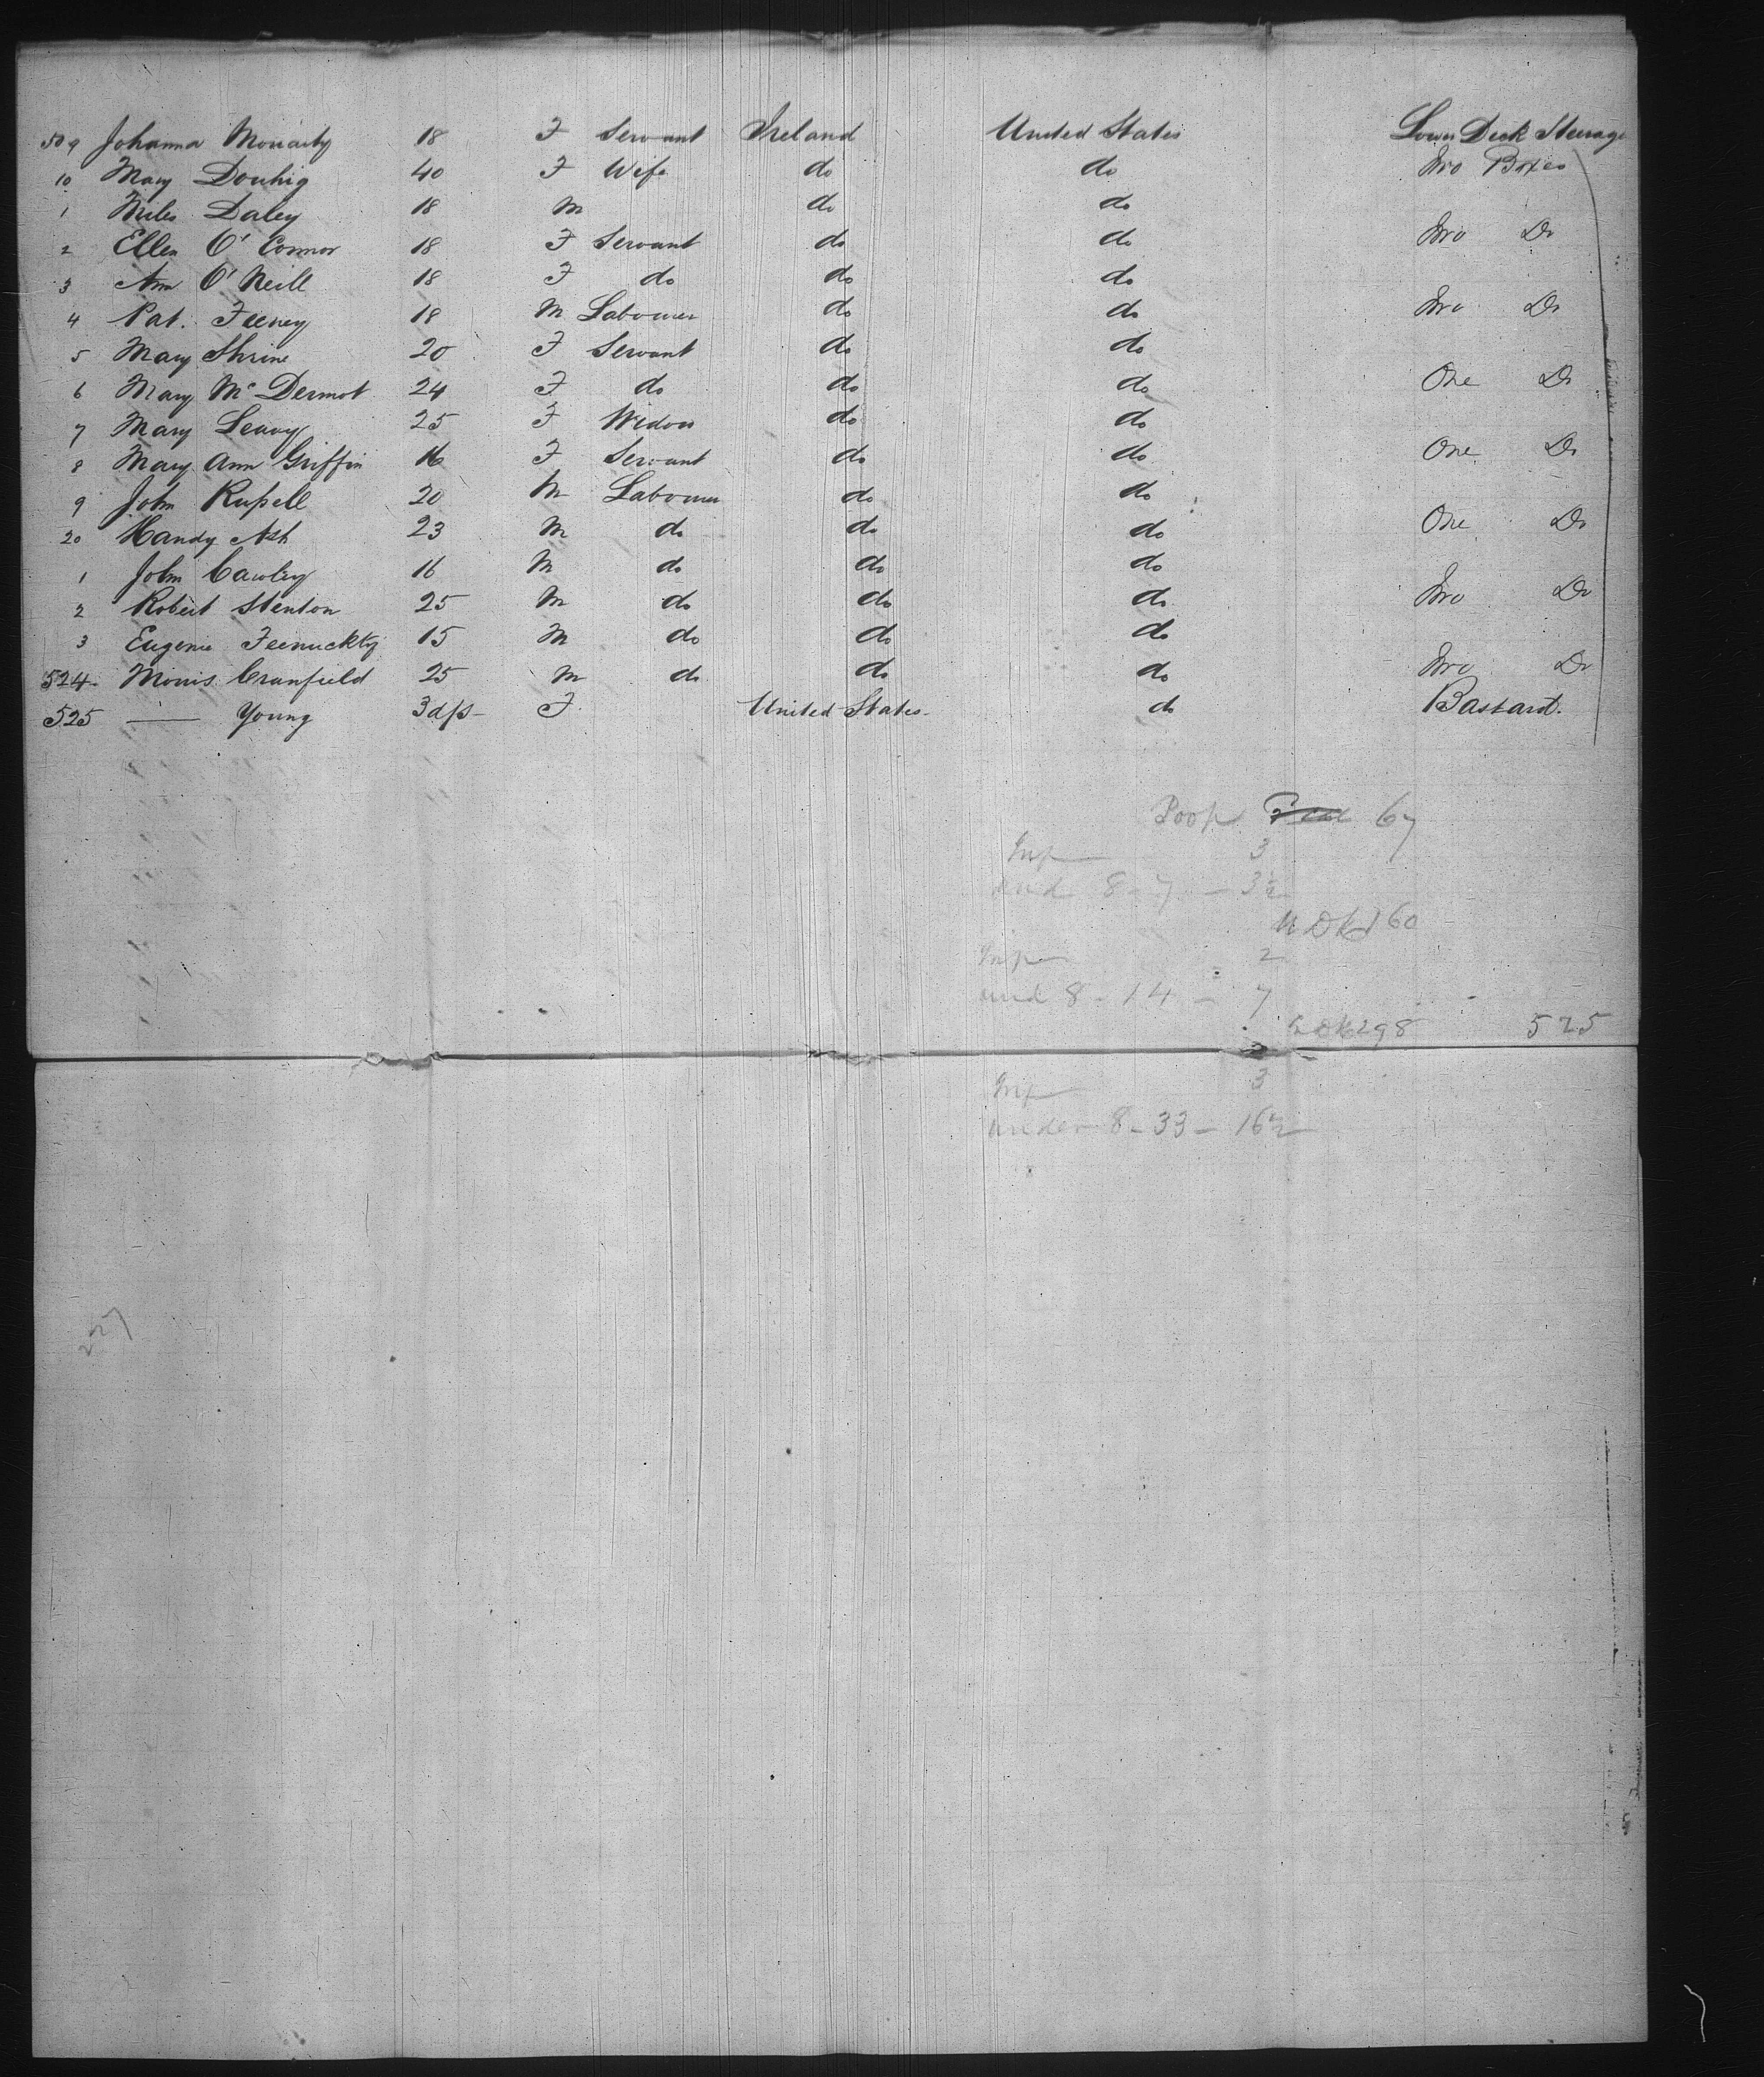 509 Johanna Moriarty 18 F Servant Ireland United States Lower Deck Steerage
10 Mary Douhig 40 F Wife do do Two Boxes
1 Miles Daley 18 M do do
2 Ellen O'Connor 18 F Servant do do Two Do
3 Ann O'Neill 18 F do do do
4 Pat. Feeney 18 M Labourer do do Two Do
5 Mary Shrine 20 F Servant do do
6 Mary McDermot 24 F do do do One Do
7 Mary Leavy 25 F Widow do do
8 Mary Ann Griffin 16 F Servant do do One Do
9 John Russell 20 M Labourer do do
20 Handy Ash 23 M do do do One Do
1 John Cawley 16 M do do do
2 Robert Stenton 25 M do do do Two Do
3 Eugene 15 M do do do
524 Morris Cranfield 25 M do do do Two Do
525 — Young 3 d/s F United States do Bastard.
Poop 67
Inf 3
und 8 - 7 - 3½
U DK 160
Inf 2
und 8 - 14 - 7
L DK 298 525
Inf 3
under 8 - 33 - 16½